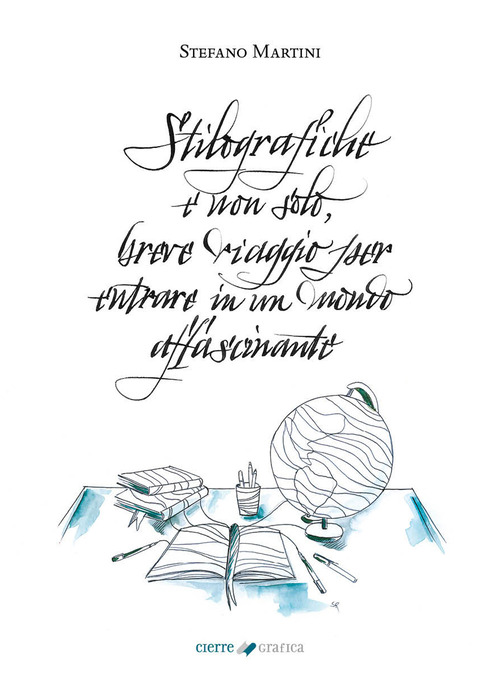 STEFANO MARTINI
Stilografiche
e non solo,
breve viaggio per
entrare in un mondo
affascinante
SR
cierre grafica